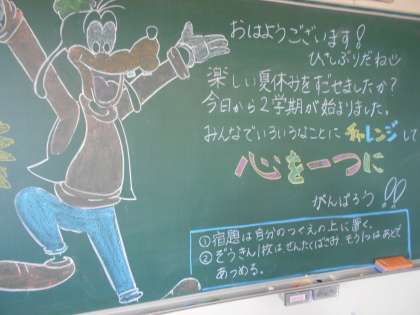 おはようございます!
ひさしぶりだね
楽しい夏休みをすごせましたか?
今日から2学期が始まりました。
みんなでいろいろなことにチャレンジして
心を一つに
がんばろう!!
①宿題は自分のつくえの上に置く。
②ぞうきん1枚はせんたくばさみ もう1つはあとで
あつめる。